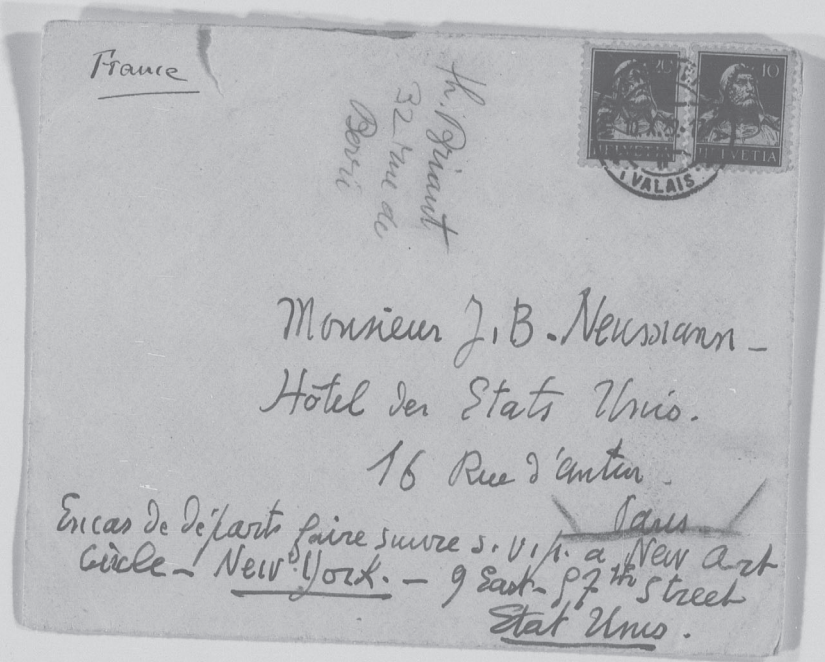 France
th. Briant
32 rue de
Berri
20
10
HELVETIA
HELVETIA
VALAIS
Monsieur J. B. Neumann –
Hôtel des Etats Unis.
16 Rue d'antin
Paris
En cas de départs faire suivre s. v. p. a New Art
Circle – New York. – 9 East – 57th Street
Etat Unis.